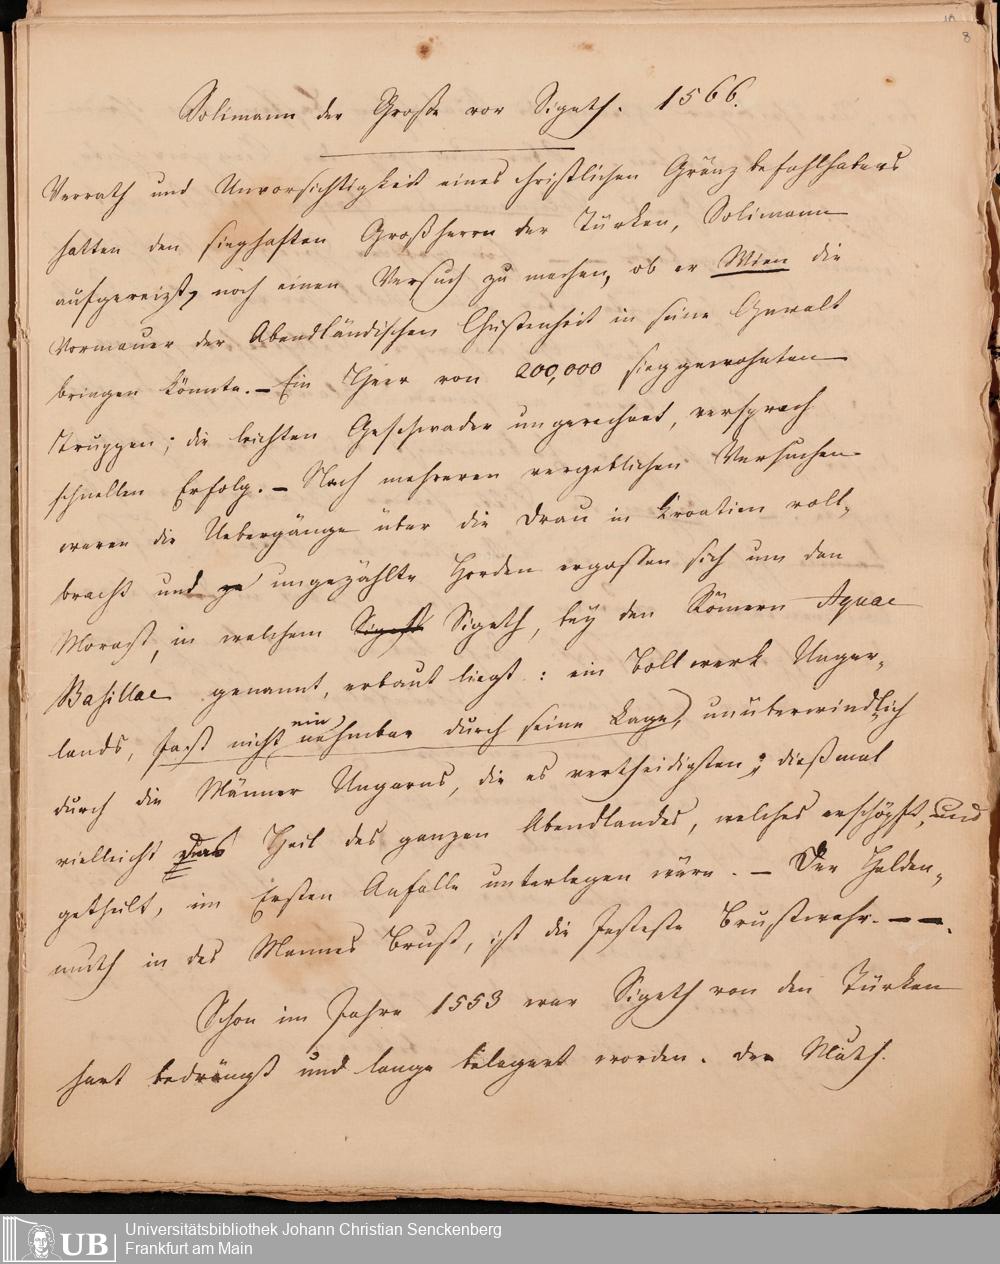 10
8
Solimann der Große vor Sigeth. 1566.
Verrath und Unvorsichtigkeit eines christlichen Gränzbefehlhabers
hatten den sieghaften Großherrn der Türken, Solimann
aufgereizt, noch einen Versuch zu machen, ob er Wien die
Vormauer der Abendländischen Christenheit in seine Gewalt
bringen könnte. – Ein Heer von 200,000 sieggewohnten
Truppen; die leichten Geschwader ungerechnet, versprach
schnellen Erfolg. – Nach mehreren vergeblichen Versuchen
waren die Uebergänge über die Drau in Kroatien voll-
bracht und ungezählte Horden ergossen sich um den
Morast, in welchem Sigeth Sigeth, bey den Römern Aquae
Basillae genannt, erbaut liegt: ein Bollwerk Ungar-
lands, fast nicht einnehmbar durch seine Lage, unüberwindlich
durch die Männer Ungarns, die es vertheidigten; dießmal
vielleicht das Heil des ganzen Abendlandes, welches erschöpft, und
getheilt, im Ersten Anfalle unterlegen wäre. – Der Helden-
muth in des Mannes Brust, ist die festeste Brustwehr. – –.
Schon im Jahre 1553 war Sigeth von den Türken
hart bedrängt und lange belagert worden. Der Muth.
UB
Universitätsbibliothek Johann Christian Senckenberg
Frankfurt am Main